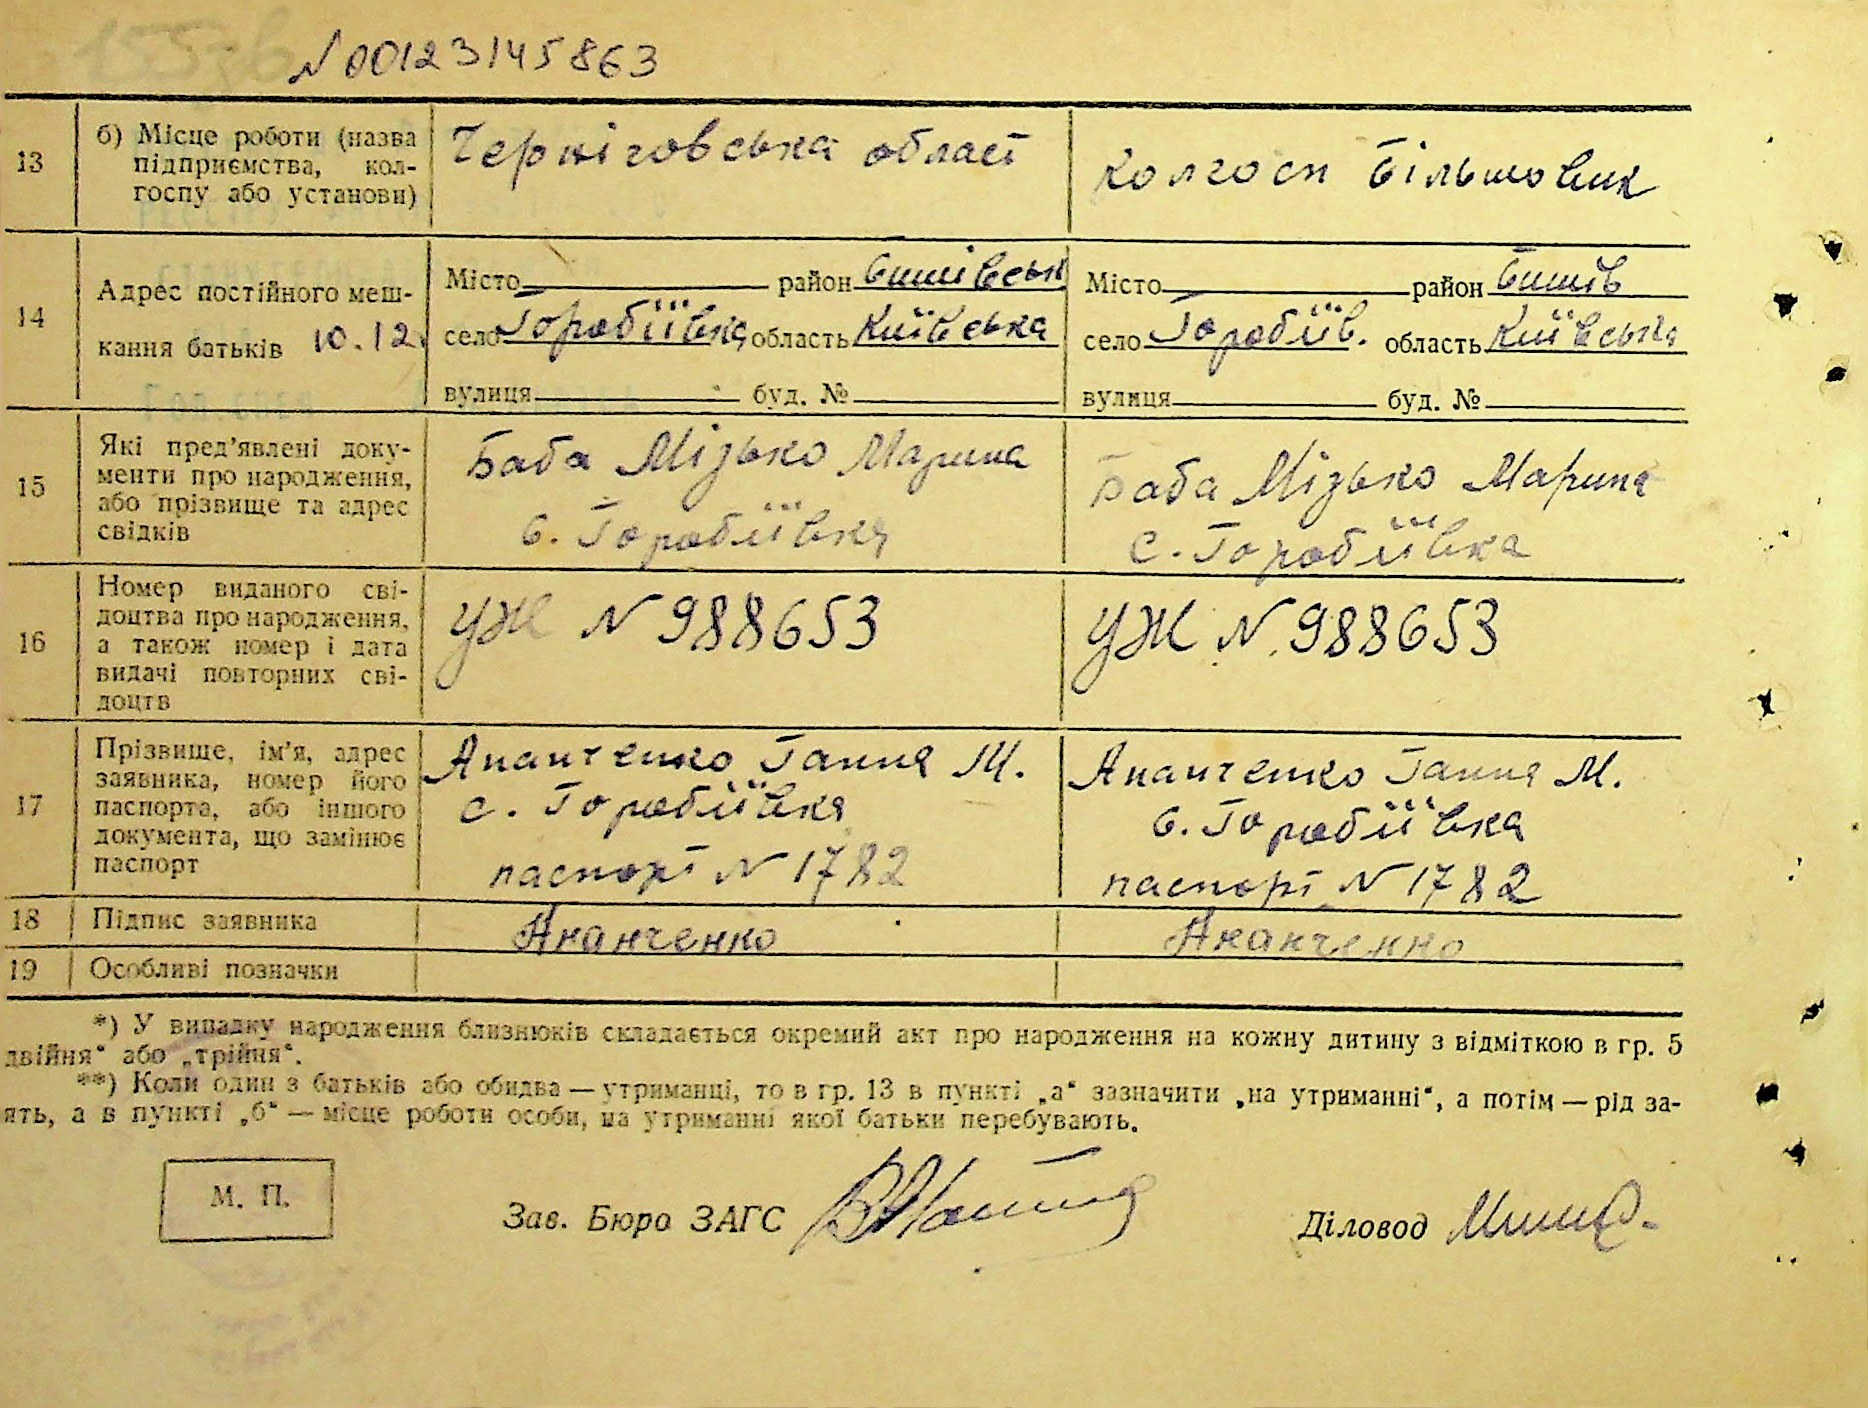 N 00123145863
13
б) Місце роботи (назва
підприємства, кол-
госпу або установи)
Черніговська област
колгосп Більшовик
14
Адрес постійного меш-
кання батьків 10.12.
Місто район Бишівськ
село Горобіївка область Київська
вулиця буд. №
Місто район Бишів
село Горобіїв. область Київська
вулиця буд. №
15
Які пред'явлені доку-
менти про народження,
або прізвище та адрес
свідків
Баба Мізько Марина
с. Горобіївка
Баба Мізько Марина
с. Горобіївка
16
Номер виданого сві-
доцтва про народження,
а також номер і дата
видачі повторних сві-
доцтв
УЖ N 988653
УЖ N 988653
17
Прізвище, ім'я, адрес
заявника, номер його
паспорта, або іншого
документа, що замінює
паспорт
Ананченко Ганна М.
с. Горобіївка
паспорт N 1782
Ананченко Ганна М.
с. Горобіївка
паспорт N 1782
18
Підпис заявника
Ананченко
Ананченко
19
Особливі позначки
*) У випадку народження близнюків складається окремий акт про народження на кожну дитину з відміткою в гр. 5
двійня" або „трійня".
**) Коли один з батьків або обидва — утриманці, то в гр. 13 в пункті „а" зазначити „на утриманні", а потім — рід за-
ять, а в пункті „б" — місце роботи особи, на утриманні якої батьки перебувають.
М. П.
Зав. Бюро ЗАГС
Діловод